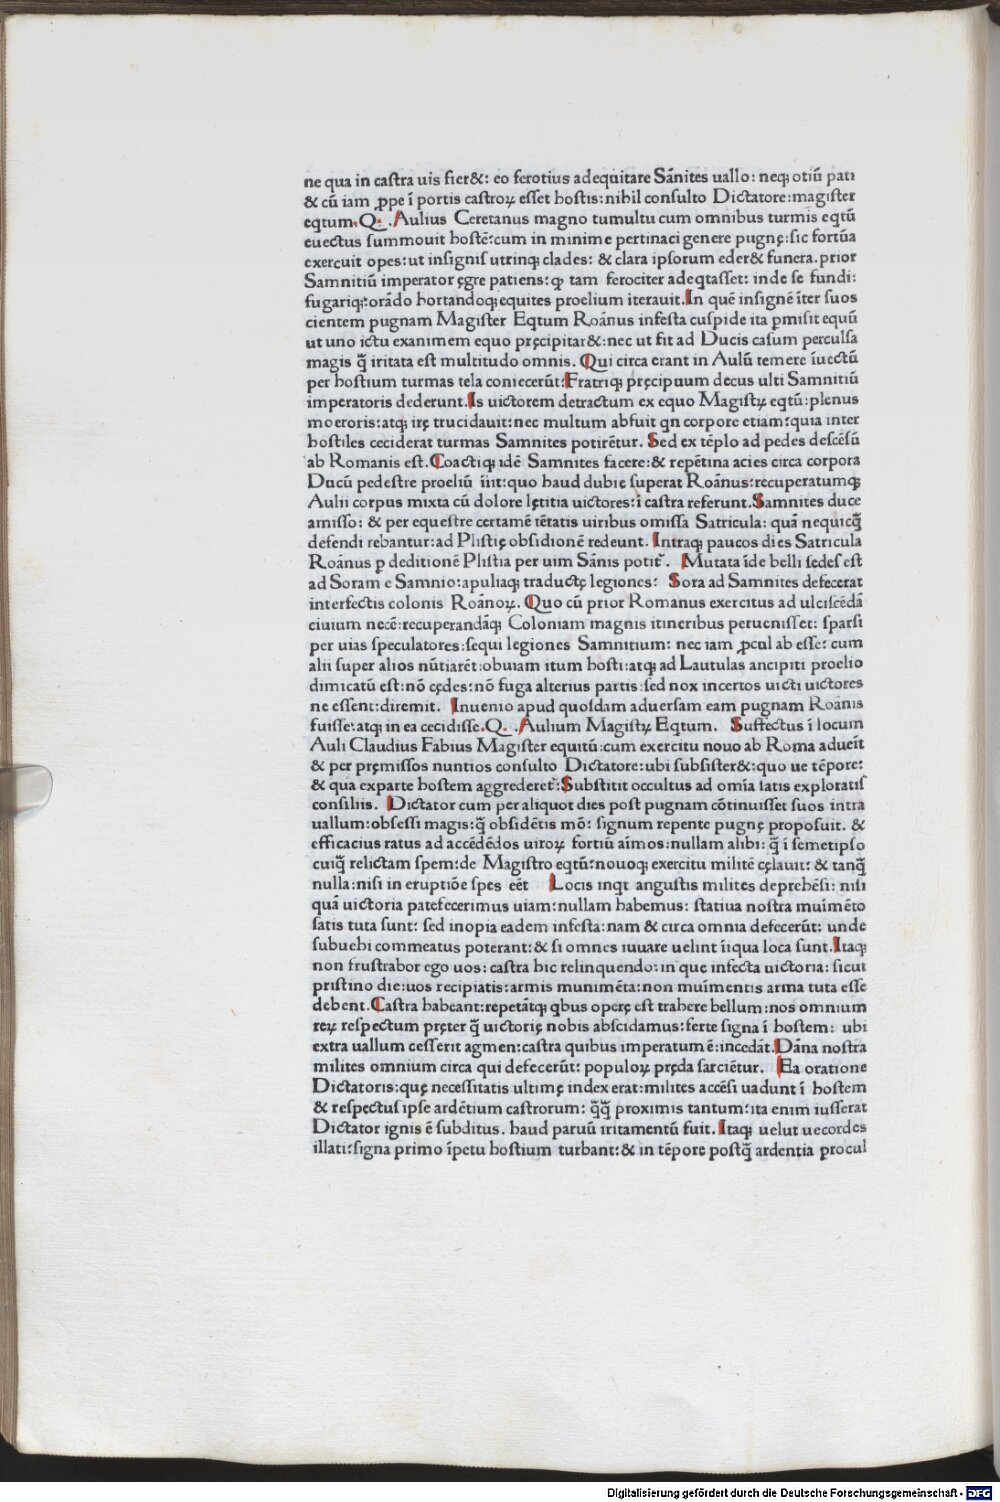 ne qua in castra uis fier&: eo ferotius adequitare Sāmnites uallo: neq; otiū pati
& cū iam ꝓpe ī portis castroꝝ esset hostis: nihil consulto Dictatore: magister
eqtum. Q. Aulius Ceretanus magno tumultu cum omnibus turmis eqtū
euectus summouit hostē: cum in minime pertinaci genere pugnę: sic fortūa
exercuit opes: ut insignis utrinq; clades: & clara ipsorum eder& funera. prior
Samnitiū imperator ęgre patiens: ꝙ tam ferociter adeqtasset: inde se fundi:
fugariq;: orādo hortandoq; equites proelium iterauit. In quē insignē īter suos
cientem pugnam Magister Eqtum Roānus infesta cuspide ita ꝑmisit equū
ut uno ictu exanimem equo pręcipitar&: nec ut fit ad Ducis casum perculsa
magis q̄ iritata est multitudo omnis. Qui circa erant in Aulū temere īuectū
per hostium turmas tela coniecerūt: Fratriq; pręcipuum decus ulti Samnitiū
imperatoris dederunt. Is uictorem detractum ex equo Magistꝝ eqtū: plenus
moeroris: atq; irę trucidauit: nec multum abfuit qn corpore etiam: quia inter
hostiles ceciderat turmas Samnites potirētur. Sed ex tēplo ad pedes descēsū
ab Romanis est. Coactiq; idē Samnites facere: & repētina acies circa corpora
Ducū pedestre proeliū īiit: quo haud dubie superat Roānus: recuperatumq;
Aulii corpus mixta cū dolore lętitia uictores: ī castra referunt. Samnites duce
amisso: & per equestre certamē tētatis uiribus omissa Satricula: quā nequicq̄
defendi rebantur: ad Plistię obsidionē redeunt. Intraq; paucos dies Satricula
Roānus ꝑ deditionē Plistia per uim Sānis potit᷑. Mutata īde belli sedes est
ad Soram e Samnio: apuliaq; traductę legiones: Sora ad Samnites defecerat
interfectis colonis Roānoꝝ. Quo cū prior Romanus exercitus ad ulciscēdā
ciuium necē: recuperandāq; Coloniam magnis itineribus peruenisset: sparsi
per uias speculatores: sequi legiones Samnitium: nec iam ꝓcul ab esse: cum
alii super alios nūtiarēt: obuiam itum hosti: atq; ad Lautulas ancipiti proelio
dimicatū est: nō cędes: nō fuga alterius partis: sed nox incertos uicti uictores
ne essent: diremit. Inuenio apud quosdam aduersam eam pugnam Roānis
fuisse: atq; in ea cecidisse. Q. Aulium Magistꝝ Eqtum. Suffectus ī locum
Auli Claudius Fabius Magister equitū: cum exercitu nouo ab Roma adueīt
& per pręmissos nuntios consulto Dictatore: ubi subsister&: quo ue tēpore:
& qua exparte hostem aggrederet᷑: Substitit occultus ad omīa satis exploratis
consiliis. Dictator cum per aliquot dies post pugnam cōtinuisset suos intra
uallum: obsessi magis: q̄ obsidētis mō: signum repente pugnę proposuit. &
efficacius ratus ad accēdēdos uiroꝝ fortiū aīmos: nullam alibi: q̄ ī semetipso
cuiq̄ relictam spem: de Magistro eqtū: nouoq; exercitu militē cęlauit: & tanq̄
nulla: nisi in eruptiōe spes eēt Locis inqt angustis milites deprehēsi: nisi
quā uictoria patefecerimus uiam: nullam habemus: statiua nostra muīmēto
satis tuta sunt: sed inopia eadem infesta: nam & circa omnia defecerūt: unde
subuehi commeatus poterant: & si omnes iuuare uelint īiqua loca sunt. Itaq;
non frustrabor ego uos: castra hic relinquendo: in que infecta uictoria: sicut
pristino die: uos recipiatis: armis munimēta: non muīmentis arma tuta esse
debent. Castra habeant: repetātq; qbus operę est trahere bellum: nos omnium
reꝝ respectum pręter q̄ uictorię nobis abscidamus: ferte signa ī hostem: ubi
extra uallum cesserit agmen: castra quibus imperatum ē: incedāt. Dāna nostra
milites omnium circa qui defecerūt: populoꝝ pręda sarciētur. Ea oratione
Dictatoris: quę necessitatis ultimę index erat: milites accēsi uadunt ī hostem
& respectus ipse ardētium castrorum: q̄q̄ proximis tantum: ita enim iusserat
Dictator ignis ē subditus. haud paruū iritamentū fuit. Itaq; uelut uecordes
illati: signa primo īpetu hostium turbant: & in tēpore postq̄ ardentia procul
Digitalisierung gefördert durch die Deutsche Forschungsgemeinschaft - DFG